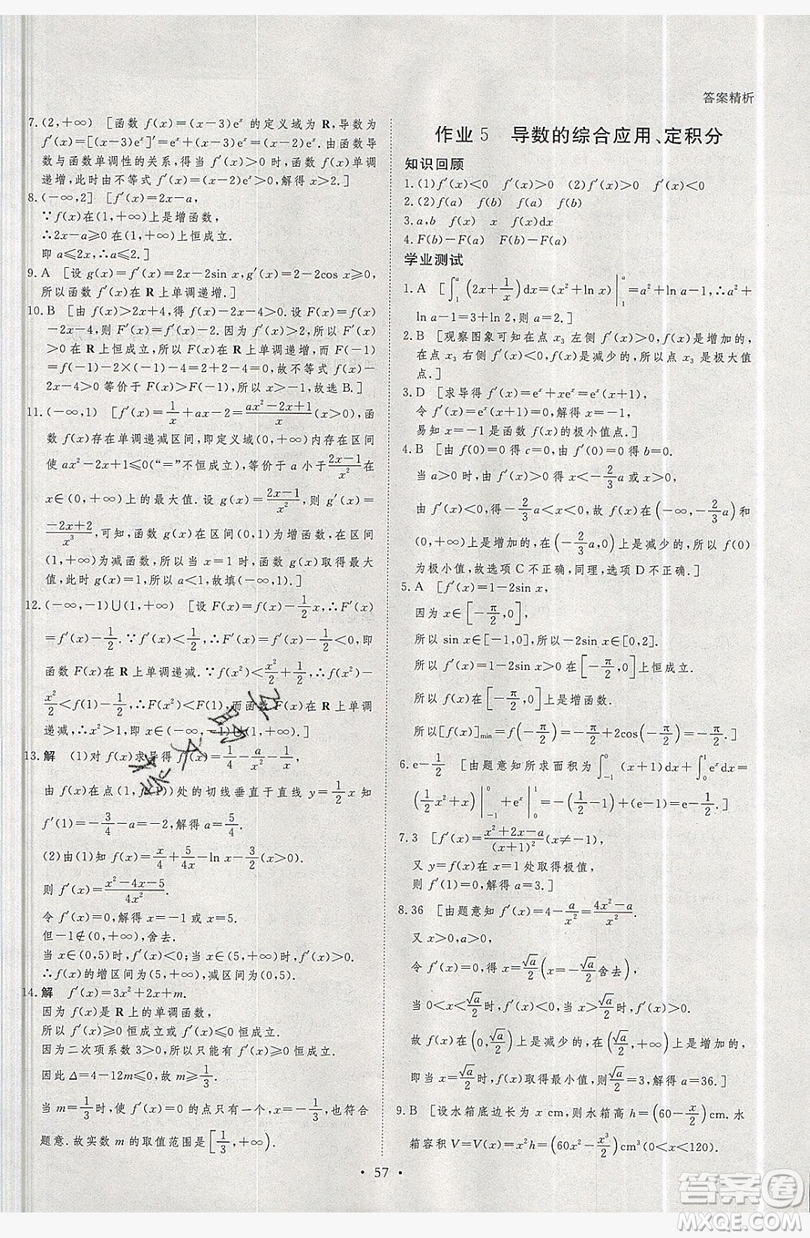 答案精析
7.(2,+∞) [函数 f(x)=(x-3)eˣ 的定义域为 R,导数为
f′(x)=[(x-3)eˣ]′=eˣ+(x-3)eˣ=(x-2)eˣ.由函数导
数与函数单调性的关系,得当 f′(x)>0 时,函数 f(x)单调
递增,此时由不等式 f′(x)=(x-2)eˣ>0,解得 x>2.]
8.(-∞,2] [f′(x)=2x-a,
∵f(x)在(1,+∞)上是增函数,
∴2x-a≥0 在(1,+∞)上恒成立.
即 a≤2x,∴a≤2.]
9.A [设 g(x)=f′(x)=2x-2sin x,g′(x)=2-2cos x≥0,
所以函数 f′(x)在 R 上单调递增.]
10.B [f(x)>2x+4,得 f(x)-2x-4>0.设 F(x)=f(x)
-2x-4,则 F′(x)=f′(x)-2.因为 f′(x)>2,所以 F′(x)
>0 在 R 上恒成立,所以 F(x)在 R 上单调递增,而
F(-1)=f(-1)-2×(-1)-4=2+2-4=0,故不等式 f(x)
-2x-4>0 等价于 F(x)>F(-1),所以 x>-1,故选 B.]
11.(-∞,1) [f′(x)=1/x+ax-2=(ax²-2x+1)/x(x>0),函
数 f(x)存在单调递减区间,即定义域(0,+∞)内存在区间
使 ax²-2x+1≤0(“=”不恒成立),等价于 a 小于 (2x-1)/x²
在 x∈(0,+∞)上的最大值.设 g(x)=(2x-1)/x²,则 g′(x)=
(-2x+2)/x³,可知,函数 g(x)在区间(0,1)为增函数,在区间
(1,+∞)为减函数,所以当 x=1 时,函数 g(x)取得最大
值,此时 g(x)=1,所以 a<1,故填(-∞,1).]
12.(-∞,-1)∪(1,+∞) [设 F(x)=f(x)-1/2x,∴F′(x)
=f′(x)-1/2,∵f′(x)<1/2,∴F′(x)=f′(x)-1/2<0,即
函数 F(x)在 R 上单调递减.∵f(x²)<x²/2+1/2,∴f(x²)-
x²/2<f(1)-1/2,∴F(x²)<F(1),而函数 F(x)在 R 上单调
递减,∴x²>1,即 x∈(-∞,-1)∪(1,+∞).]
13.解 (1)对 f(x)求导得 f′(x)=1/4-a/x²-1/x,
由 f(x)在点(1,f(1))处的切线垂直于直线 y=1/2x,知
f′(1)=-3/4-a=-2,解得 a=5/4.
(2)由(1)知 f(x)=x/4+5/(4x)-ln x-3/2(x>0).
则 f′(x)=(x²-4x-5)/(4x²).
令 f′(x)=0,解得 x=-1 或 x=5.
但-1∉(0,+∞),舍去.
当 x∈(0,5)时,f′(x)<0;当 x∈(5,+∞)时,f′(x)>0.
∴f(x)的增区间为(5,+∞),减区间为(0,5).
14.解 f′(x)=3x²+2x+m.
因为 f(x)是 R 上的单调函数,
所以 f′(x)≥0 恒成立或 f′(x)≤0 恒成立.
因为二次项系数 3>0,所以只能有 f′(x)≥0 恒成立.
因此 Δ=4-12m≤0,故 m≥1/3.
当 m=1/3时,使 f′(x)=0 的点只有一个 x=-1/3,也符合
题意.故实数 m 的取值范围是[1/3,+∞).
作业 5 导数的综合应用、定积分
知识回顾
1.(1)f′(x)<0 f′(x)>0 (2)f′(x)>0 f′(x)<0
2.(2)f(a) f(b) f(a) f(b)
3.a,b f(x) x f(x)dx
4.F(b)-F(a) F(b)-F(a)
学业测试
1.A [∫₁ᵃ(2x+1/x)dx=(x²+ln x)|₁ᵃ=a²+
ln a-1=3+ln 2,a=2.]
2.B [观察图象可知在点 x₃ 左侧 f′(x)>0,f(x)是增加的,
在点 x₃ 右侧 f′(x)<0,f(x)是减少的,所以 x₃ 是极大值
点.]
3.D [求导得 f′(x)=eˣ+xeˣ=eˣ(x+1),
令 f′(x)=eˣ(x+1)=0,解得 x=-1,
易知 x=-1 是函数 f(x)的极小值点.]
4.B [由 f(0)=0 得 c=0,由 f′(0)=0 得 b=0.
当 a>0 时,由 f′(x)>0 得 x<-2/3a 或 x>0,
由 f′(x)<0 得-2/3a<x<0,故 f(x)在(-∞,-2/3a)和
(0,+∞)上是增加的,在(-2/3a,0)上是减少的,所以 f(0)
为极小值,所以选项 C 不正确,同理,选项 D 不正确.]
5.A [f′(x)=1-2sin x,
因为 x∈[-π/2,0],
所以 sin x∈[-1,0],所以-2sin x∈[0,2].
所以 f′(x)=1-2sin x>0 在[-π/2,0]上恒成立.
所以 f(x)在[-π/2,0]上单调递增.
所以[f(x)]min=f(-π/2)=-π/2+2cos(-π/2)=-π/2.]
6.e-1/2 [由题意知所求面积为∫₋₁⁰(x+1)dx+∫₀¹eˣdx=
(1/2x²+x)|₋₁⁰+eˣ|₀¹=-(1/2-1)+(e-1)=e-1/2.]
7.3 [f′(x)=(x²+2x-a)/(x+1)²(x≠-1),
又 y=f(x)在 x=1 处取得极值,
则 f′(1)=0,解得 a=3.]
8.36 [由题意知 f′(x)=4-a/x²=(4x²-a)/x²,
又 x>0,a>0,
令 f′(x)=0,得 x=√a/2(x=-√a/2舍去),
当 0<x<√a/2时,f′(x)<0;当 x>√a/2时,f′(x)>0.
故 f(x)在(0,√a/2)上递减,在(√a/2,+∞)上递增.
即当 x=√a/2时,f(x)取得最小值,则√a/2=3,解得 a=36.]
9.B [设水箱底边长为 x cm,则水箱高 h=(60-x/2)cm.
水箱容积 V=V(x)=x²h=(60x²-x³/2)cm³(0<x<120).
• 57 •
答案卷
MXQE.COM